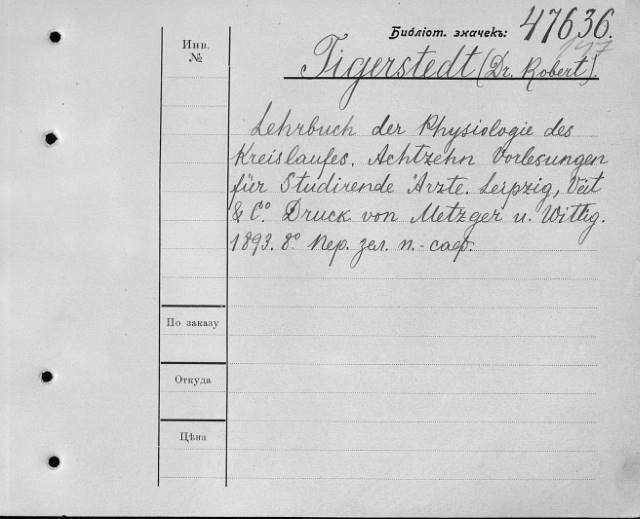 Библіот. значекъ: 47636.
147
Tigerstedt (Dr. Robert).
Инв.
№
Lehrbuch der Physiologie des
Kreislaufes. Achtzehn Vorlesungen
für Studirende Ärzte. Leipzig, Veit
& Cº. Druck von Metzger u. Wittig.
1893. 8º Пер. зел. п.-саф.
По заказу
Откуда
Цѣна